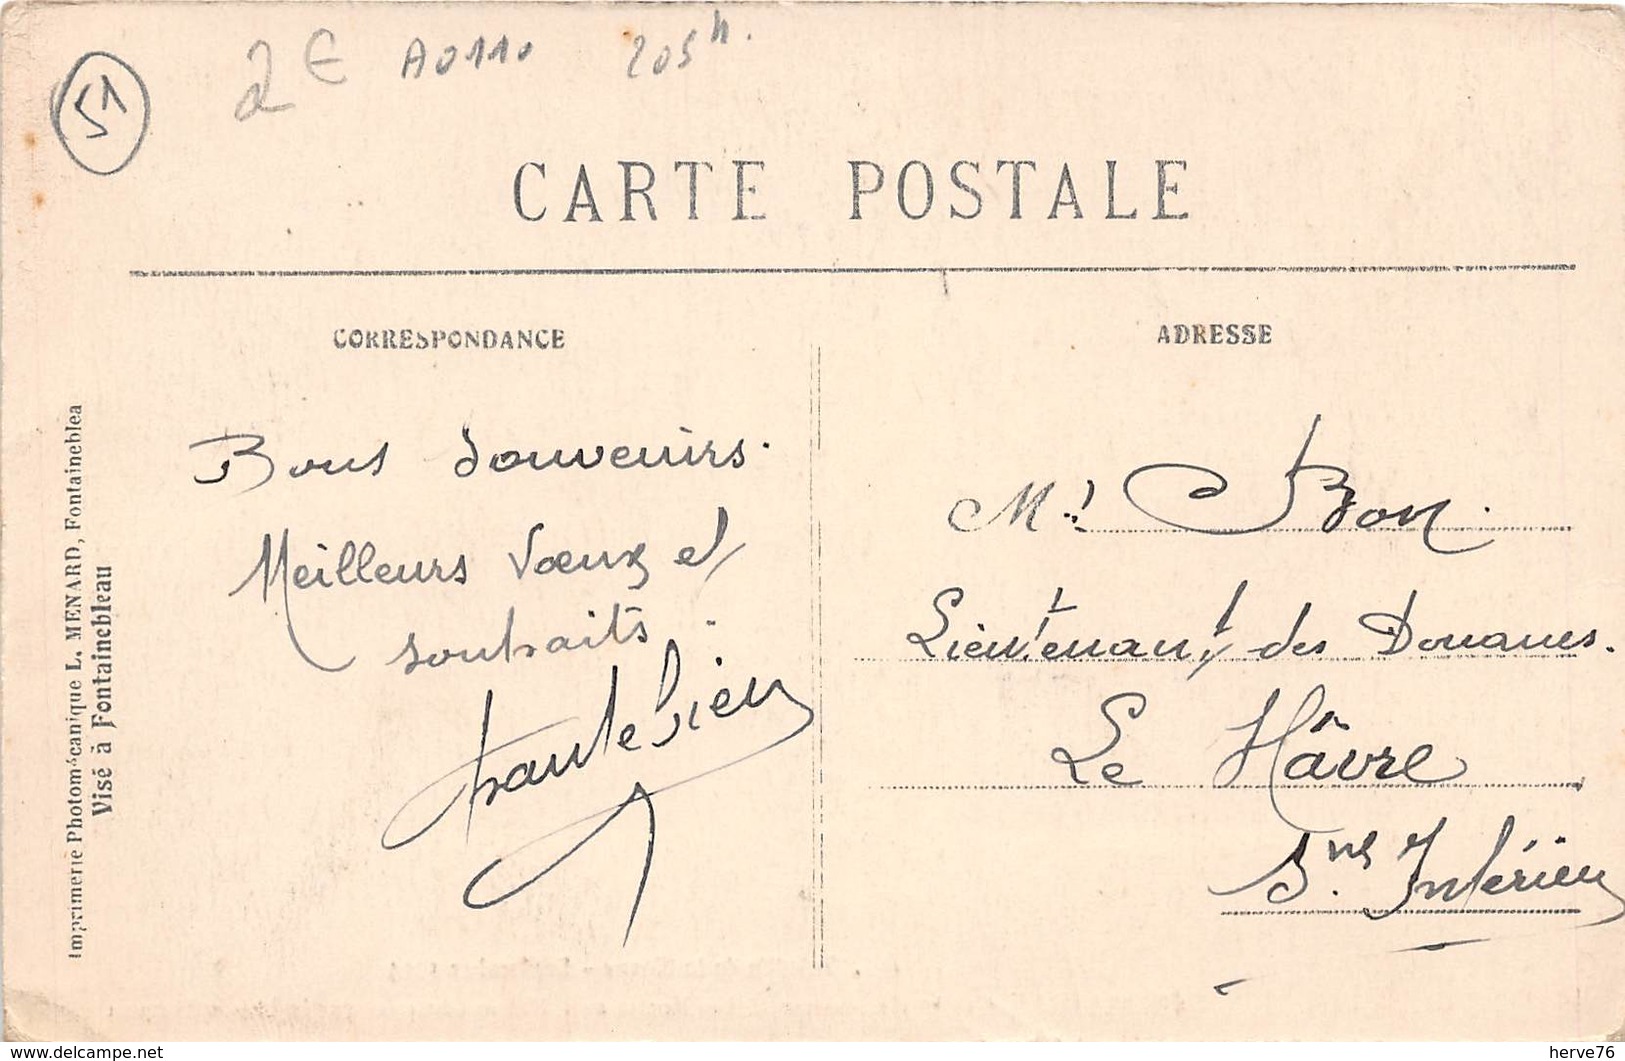 51
2 € A0110 205h.
CARTE POSTALE
CORRESPONDANCE
ADRESSE
Imprimerie Photomécanique L. MENARD, Fontaineblea
Visé à Fontainebleau
Bons Souvenirs.
Meilleurs Vœux et
souhaits.
Mr. Bon.
Lieutenant des Douanes.
Le Hâvre
Sne Inférieu
www.delcampe.net
herve76